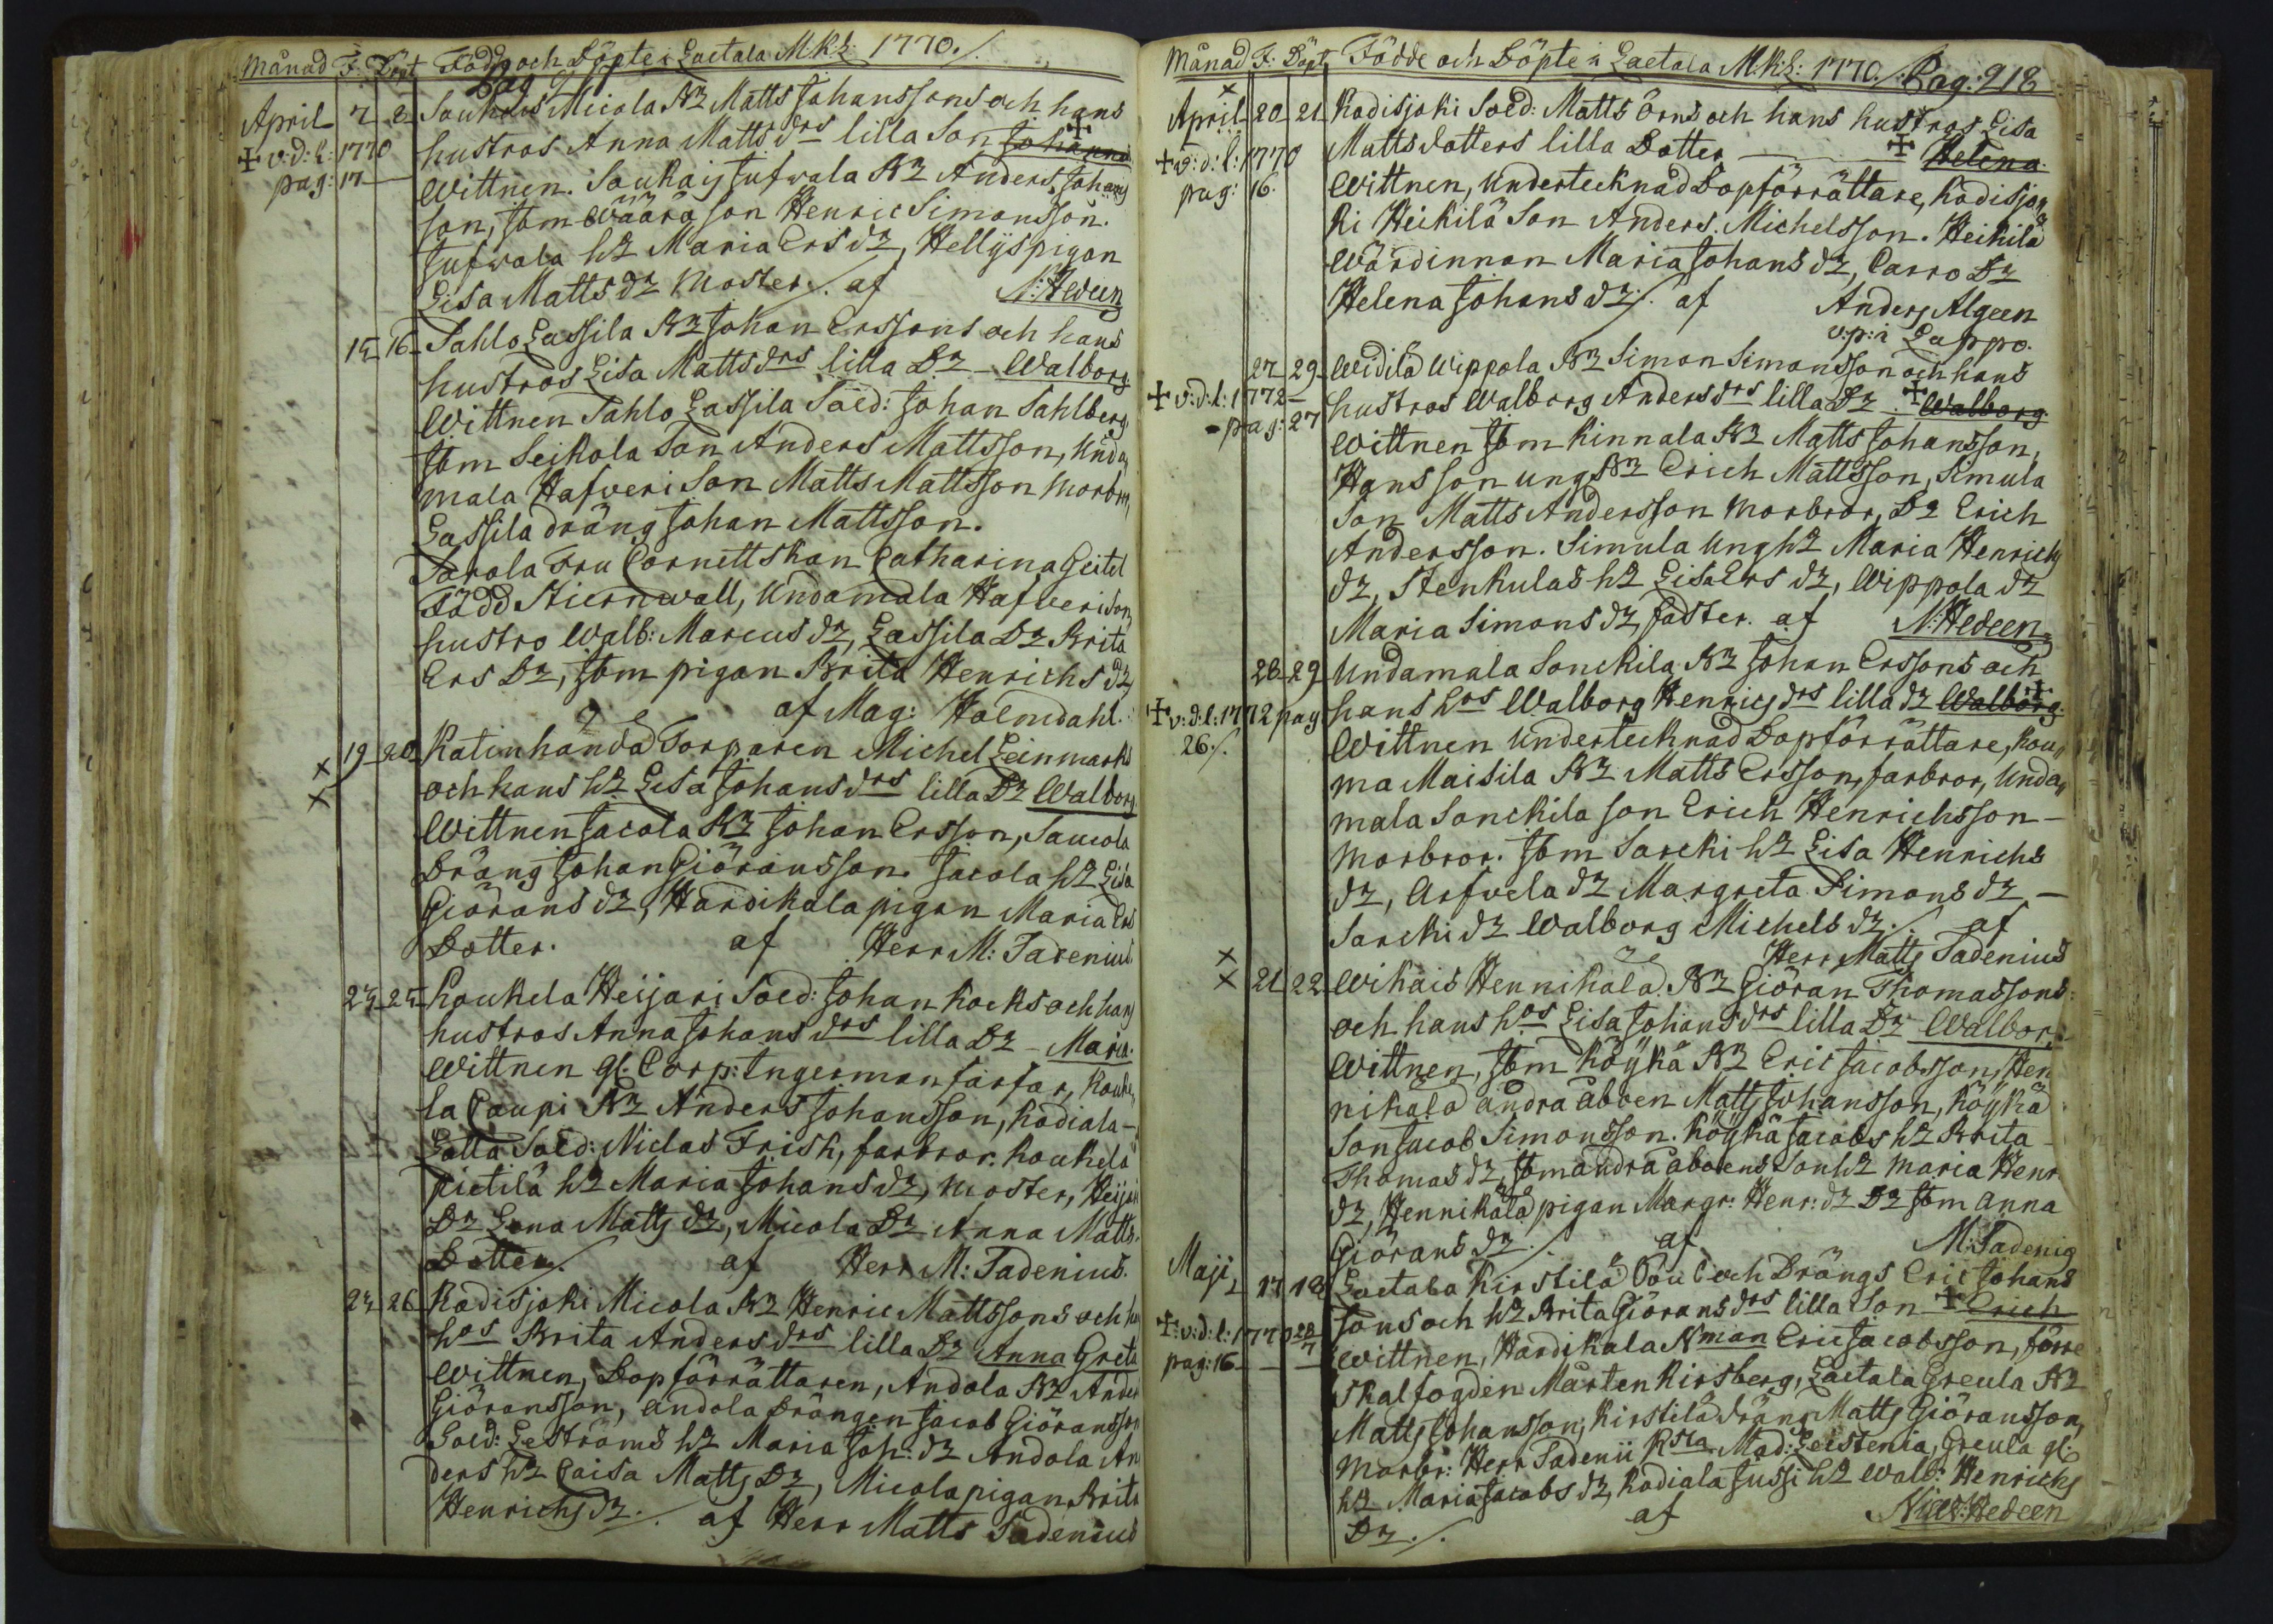 Månad F. Döpt Födde och Döpte i Laetala M.K.L: 1770./.
Dag
April 7 8 Soukais Micola Bz Matts Johanssons och hans
+ v:d:l: 1770 hustros Anna Matts drs lilla Son + Johanna
pag: 17 Wittnen. Soukais Jufwala Bz Anders Johans
son, Jbm Wäärä son Henric Simonsson.
Jufwala hz Maria Ers dz, Hellys pigan
Lisa Matts dz Moster ./. af N: Hedeen
15 16 Sahlo Lassila Bz Johan Erssons och hans
hustros Lisa Matts drs lilla Dz - Walborg
Wittnen Sahlo Lassila Sold: Johan Sahlberg
Jbm Seikola Son Anders Mattsson, Unda
mala Hafveri Son Matts Mattsson Morbror,
Lassila dräng Johan Mattsson.
Sarola Fru Cornettskan Catharina Geitel
Född Stiernwall, Undamala Hafveri Son
hustro Walb: Marcus dz, Lassila Dz Brita
Ers Dz, Jbm pigan Brita Henrichs dz
af Mag: Holmdahl.
19 20 Katinhända Torparen Michel Leinmarks
och hans hz Lisa Johans drs lilla Dz Walborg.
Wittnen Jacola Bz Johan Ersson, Saucola
Dräng Johan Giöransson. Jacola hz Lisa
Giörans dz, Hardikala pigan Maria Ers
Dotter. af Herr M: Tadenius.
24 25 Koukela Heijari Sold: Johan Kocks och hans
hustros Anna Johans drs lilla Dz - Maria.
Wittnen gl. Corp: Ingerman farfar, Kouke
la Caupi Bz Anders Johansson, Kodiala-
Lalla Sold: Niclas Frisk, farbror. Koukela
Pietilä hz Maria Johans dz, Moster, Heijari
Dz Lena Matts dz, Micola Dz Anna Matts.
Dotter ./. af Herr M: Tadenius.
24 26 Kodisjoki Micola Bz Henric Mattssons och hans
hos Brita Anders drs lilla Dz Anna Greta
Wittnen, Dopförrättaren, Andola Bz Anders
Giöransson, Andola Drängen Jacob Giöransson
Sold: Leströms hz Maria Joh: dz Andola An
ders hz Caisa Matts Dz, Micola pigan Brita
Henrichs dz ./. af Herr Matts Tadenius
Månad F: Döpt Födde och Döpte i Laetala M:K:L: 1770./. Pag: 918
April 20 21 Kodisjoki Sold: Matts Örns och hans hustros Lisa
+ v:d:l: 1770 Matts dotters lilla Dotter + Helena
pag: 16. Wittnen, Undertecknad Dopförrättare, Kodisjo
ki Heikilä Son Anders Michelsson. Heikilä
Wärdinnan Maria Johans dz, Carro Dz
Helena Johans dz ./. af Anders Algeen
v.p: i Lappo.
27 29 Widilä Wippola Bz Simon Simonsson och hans
+ v:d:l: 1772 hustros Walborg Anders drs lilla Dz + Walborg
pag: 27 Wittnen Jbm Kinnala Bz Matts Johansson,
Hans son ung Bz Erich Mattsson, Simula
Son Matts Andersson Morbror, Dz Erich
Andersson. Simula Ung hz Maria Henrichs
dz, Stenkulas hz Lisa Ers dz, Wippola dz
Maria Simons dz, faster. af N: Hedeen
28 29 Undamala Sonckila Bz Johan Erssons och
+ v:d:l: 1772 pag hans hos Walborg Henrics drs lilla dz + Walborg
26./. Wittnen Undertecknad Dopförrättare, Kou
ma Maisila Bz Matts Ersson, farbror, Unda
mala Sonckila son Erich Henrichsson -
Morbror. Jbm Sarcki hz Lisa Henrichs
dz, Arfvela dz Margreta Simons dz, -
Sarcki dz Walborg Michels dz ./. af
Herr Matts Tadenius
21 22 Wikais Hennikala Bz Giöran Thomassons
och hans hos Lisa Johans drs lilla Dz Walbor.
Wittnen, Jbm Köykä Bz Eric Jacobsson, Hen
nikala andra åboen Matts Johansson, Köykä
Son Jacob Simonsson. Köykä Jacobs hz Brita
Thomas dz, Jbm andra åboens Son hz Maria Henr.
dz, Hennikala pigan Margr: Henr: dz Dz Jbm Anna
Giörans dz ./. af M: Tadenius
Maji 17 18 Laetala Kirstilä och Drängs Eric Johans
+ v:d:l: 1770 28/7 sons och hz Brita Giörans drs lilla Son + Erich
pag: 16 Wittnen, Hardikala Nman Eric Jacobsson, förre
skalfogden Mårten Kirsberg, Laetala Greula Bz
Matts Johansson, Kirstilä dräng Matts Giöransson,
Morbr: Herr Tadenii Kjsta Mad: Leistenia, Greula gl:
hz Maria Jacobs dz, Kodiala Jussi hz Walb: Henrichs
Dz ./. af Nicl: Hedeen